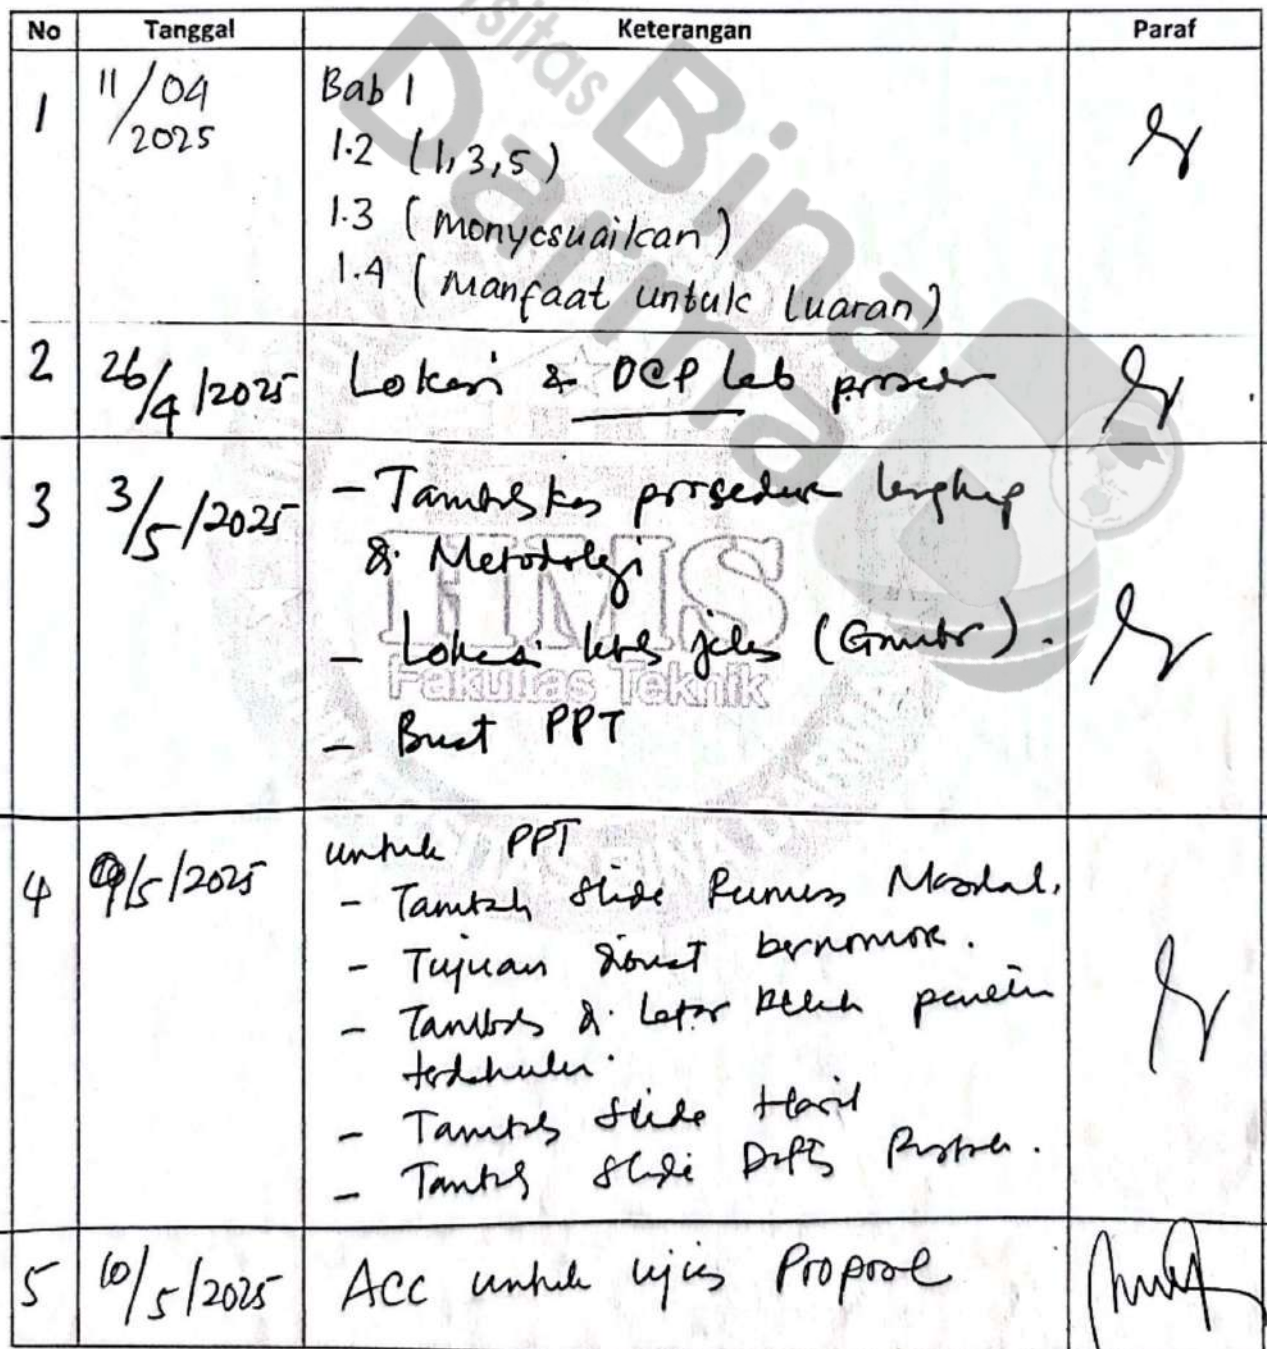 No Tanggal Keterangan Paraf
1 11/04/2025 Bab 1
1.2 (1,3,5)
1.3 (Menyesuaikan)
1.4 (Manfaat untuk Luaran)
2 26/4/2025 Lokasi & DCP Lab prosedur
3 3/5/2025 - Tambahkan prosedur lengkap
di Metodologi
- Lokasi jelas (Gambar).
- Buat PPT
4 9/5/2025 untuk PPT
- Tambah Slide Rumus Masalah.
- Tujuan dibuat bernomor.
- Tambah di Latar Belak peneliti
terdahulu.
- Tambah Slide Hasil
- Tambah Slide Dafts Pustak.
5 10/5/2025 ACC untuk ujian Proposal
Universitas Bina Darma
HMS
Fakultas Teknik